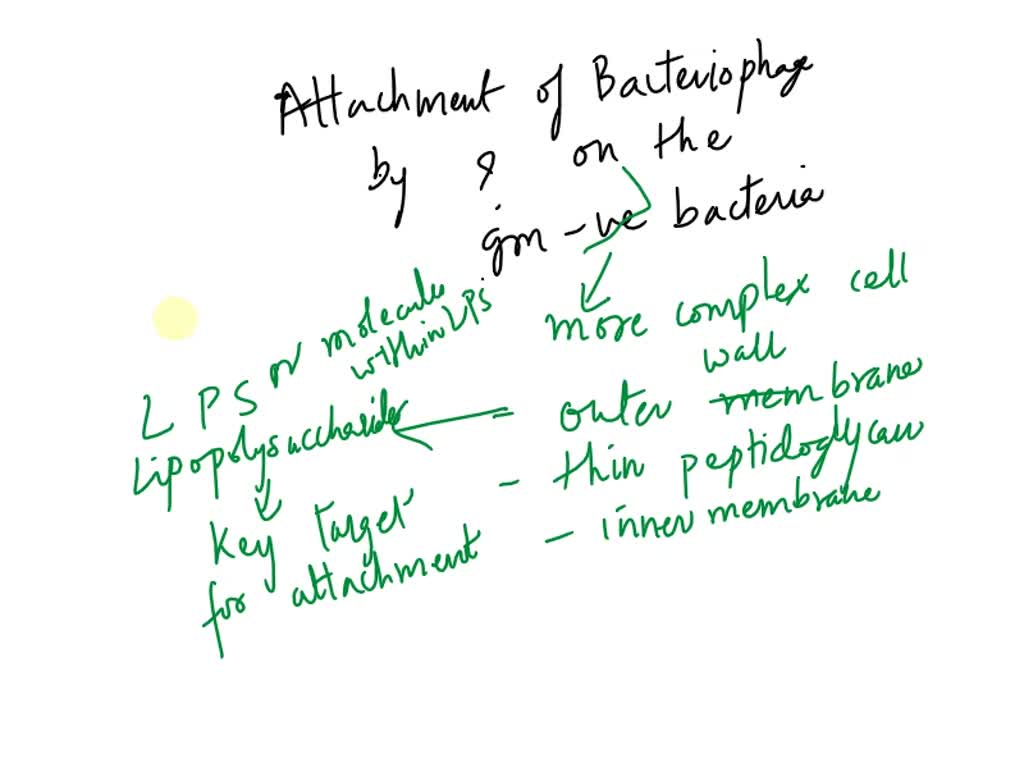 Attachment of Bacteriophage
by & on the
gm -ve bacteria
more complex cell
wall
= outer membrane
- thin peptidoglycan
- inner membrane
LPS or molecules
within LPS
Lipopolysaccharides
Key target
for attachment